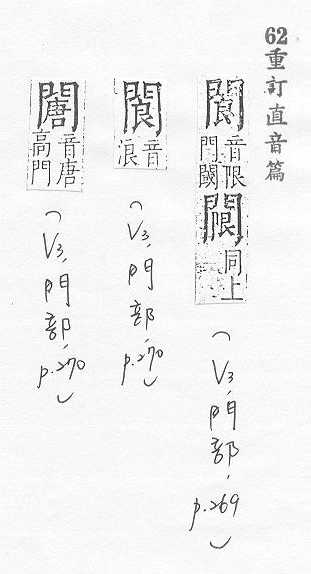 62重訂直音篇
音限
門閾
同上
(V3, 門部, p.269)
閬
音
浪
(V3, 門部, p.270)
音唐
高門
(V3, 門部, p.270)